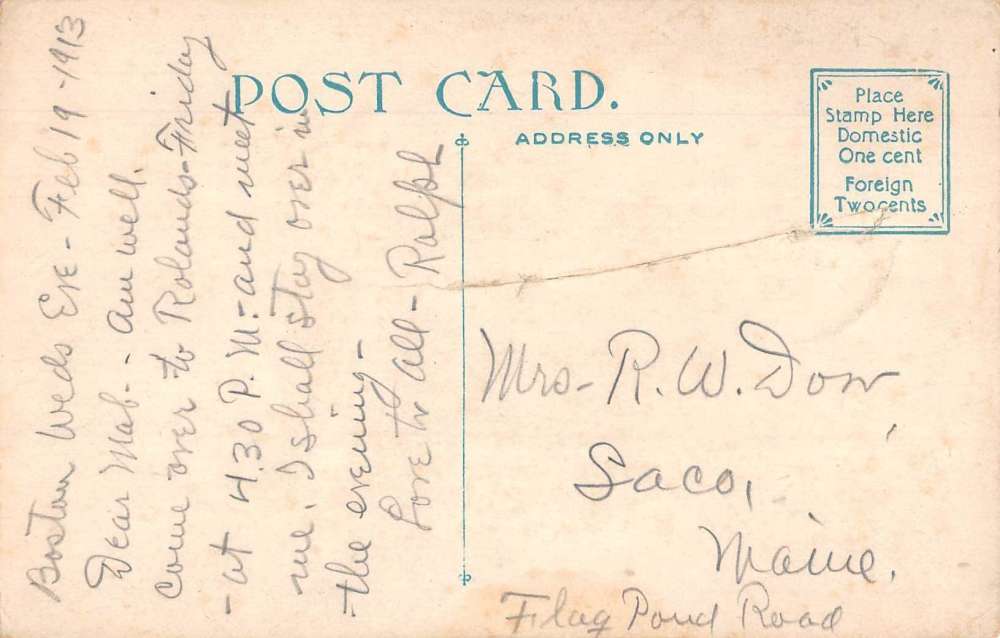 Boston Weds Eve - Feb 19 - 1913
Dear Mab. - Am well.
Come over to Rolands - Friday
- at 4.30 P. M. - and meet
me. I shall stay over in
the evening -
Love to All - Ralph
POST CARD.
ADDRESS ONLY
Place
Stamp Here
Domestic
One cent
Foreign
Two cents
Mrs - R. W. Dow
Saco,
Maine.
Flag Pond Road